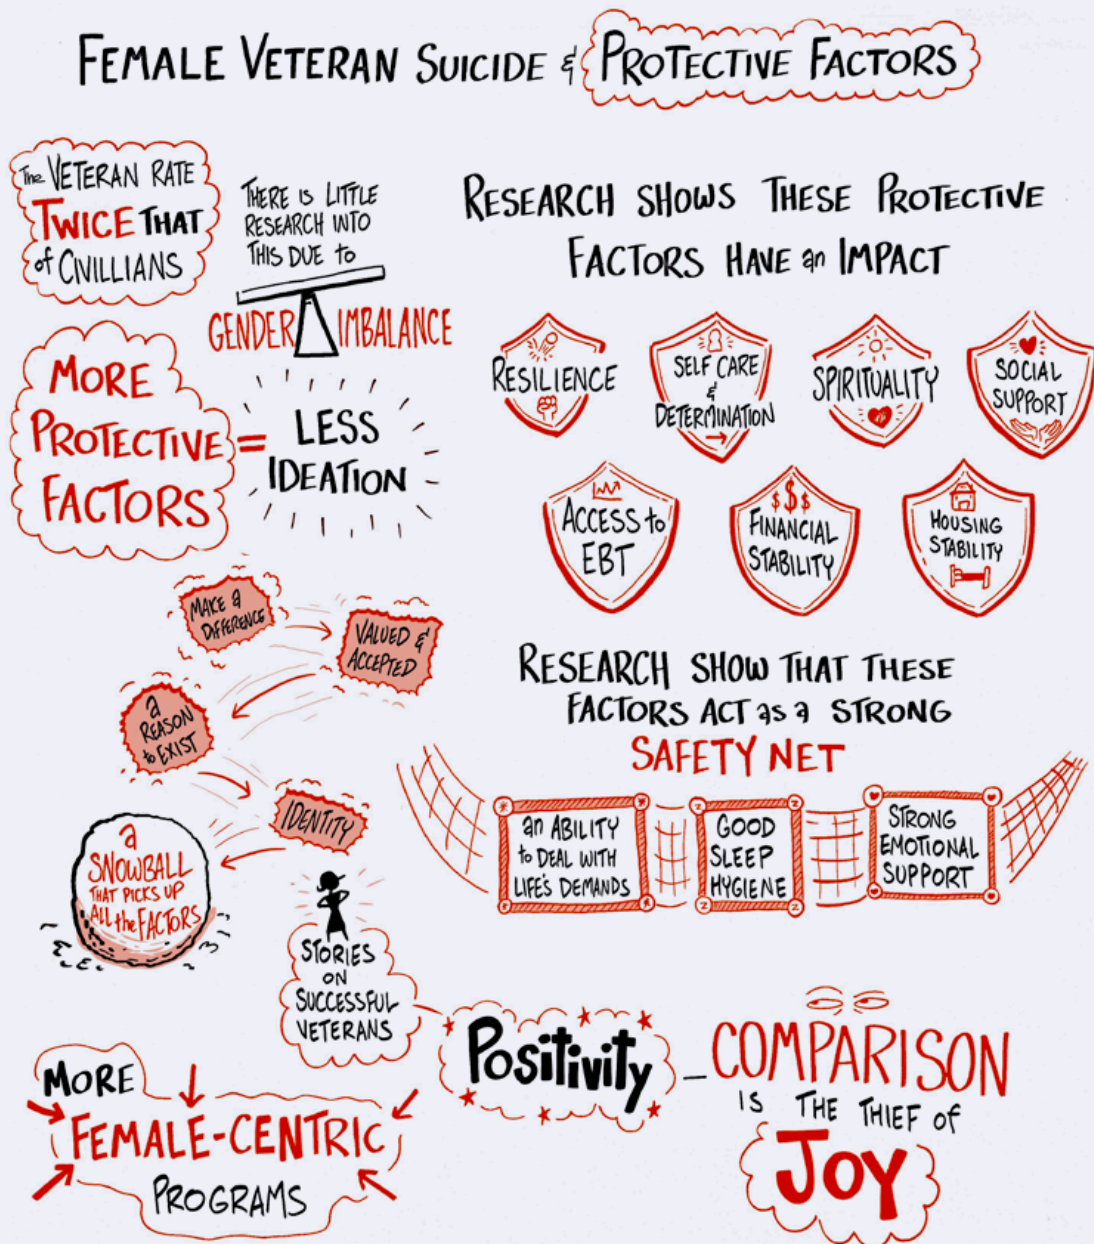 FEMALE VETERAN SUICIDE & PROTECTIVE FACTORS
The VETERAN RATE
TWICE THAT
of CIVILLIANS
THERE IS LITTLE
RESEARCH INTO
THIS DUE to
GENDER IMBALANCE
MORE
PROTECTIVE
FACTORS
=
LESS
IDEATION
RESEARCH SHOWS THESE PROTECTIVE
FACTORS HAVE an IMPACT
RESILIENCE
SELF CARE
&
DETERMINATION
SPIRITUALITY
SOCIAL
SUPPORT
ACCESS to
EBT
$$$
FINANCIAL
STABILITY
HOUSING
STABILITY
MAKE a
DIFFERENCE
VALUED &
ACCEPTED
a
REASON
to EXIST
IDENTITY
a
SNOWBALL
THAT PICKS UP
ALL the FACTORS
RESEARCH SHOW THAT THESE
FACTORS ACT as a STRONG
SAFETY NET
an ABILITY
to DEAL WITH
LIFE'S DEMANDS
Z Z
GOOD
SLEEP
HYGIENE
Z Z
STRONG
EMOTIONAL
SUPPORT
STORIES
ON
SUCCESSFUL
VETERANS
Positivity
COMPARISON
IS THE THIEF of
JOY
MORE
FEMALE-CENTRIC
PROGRAMS